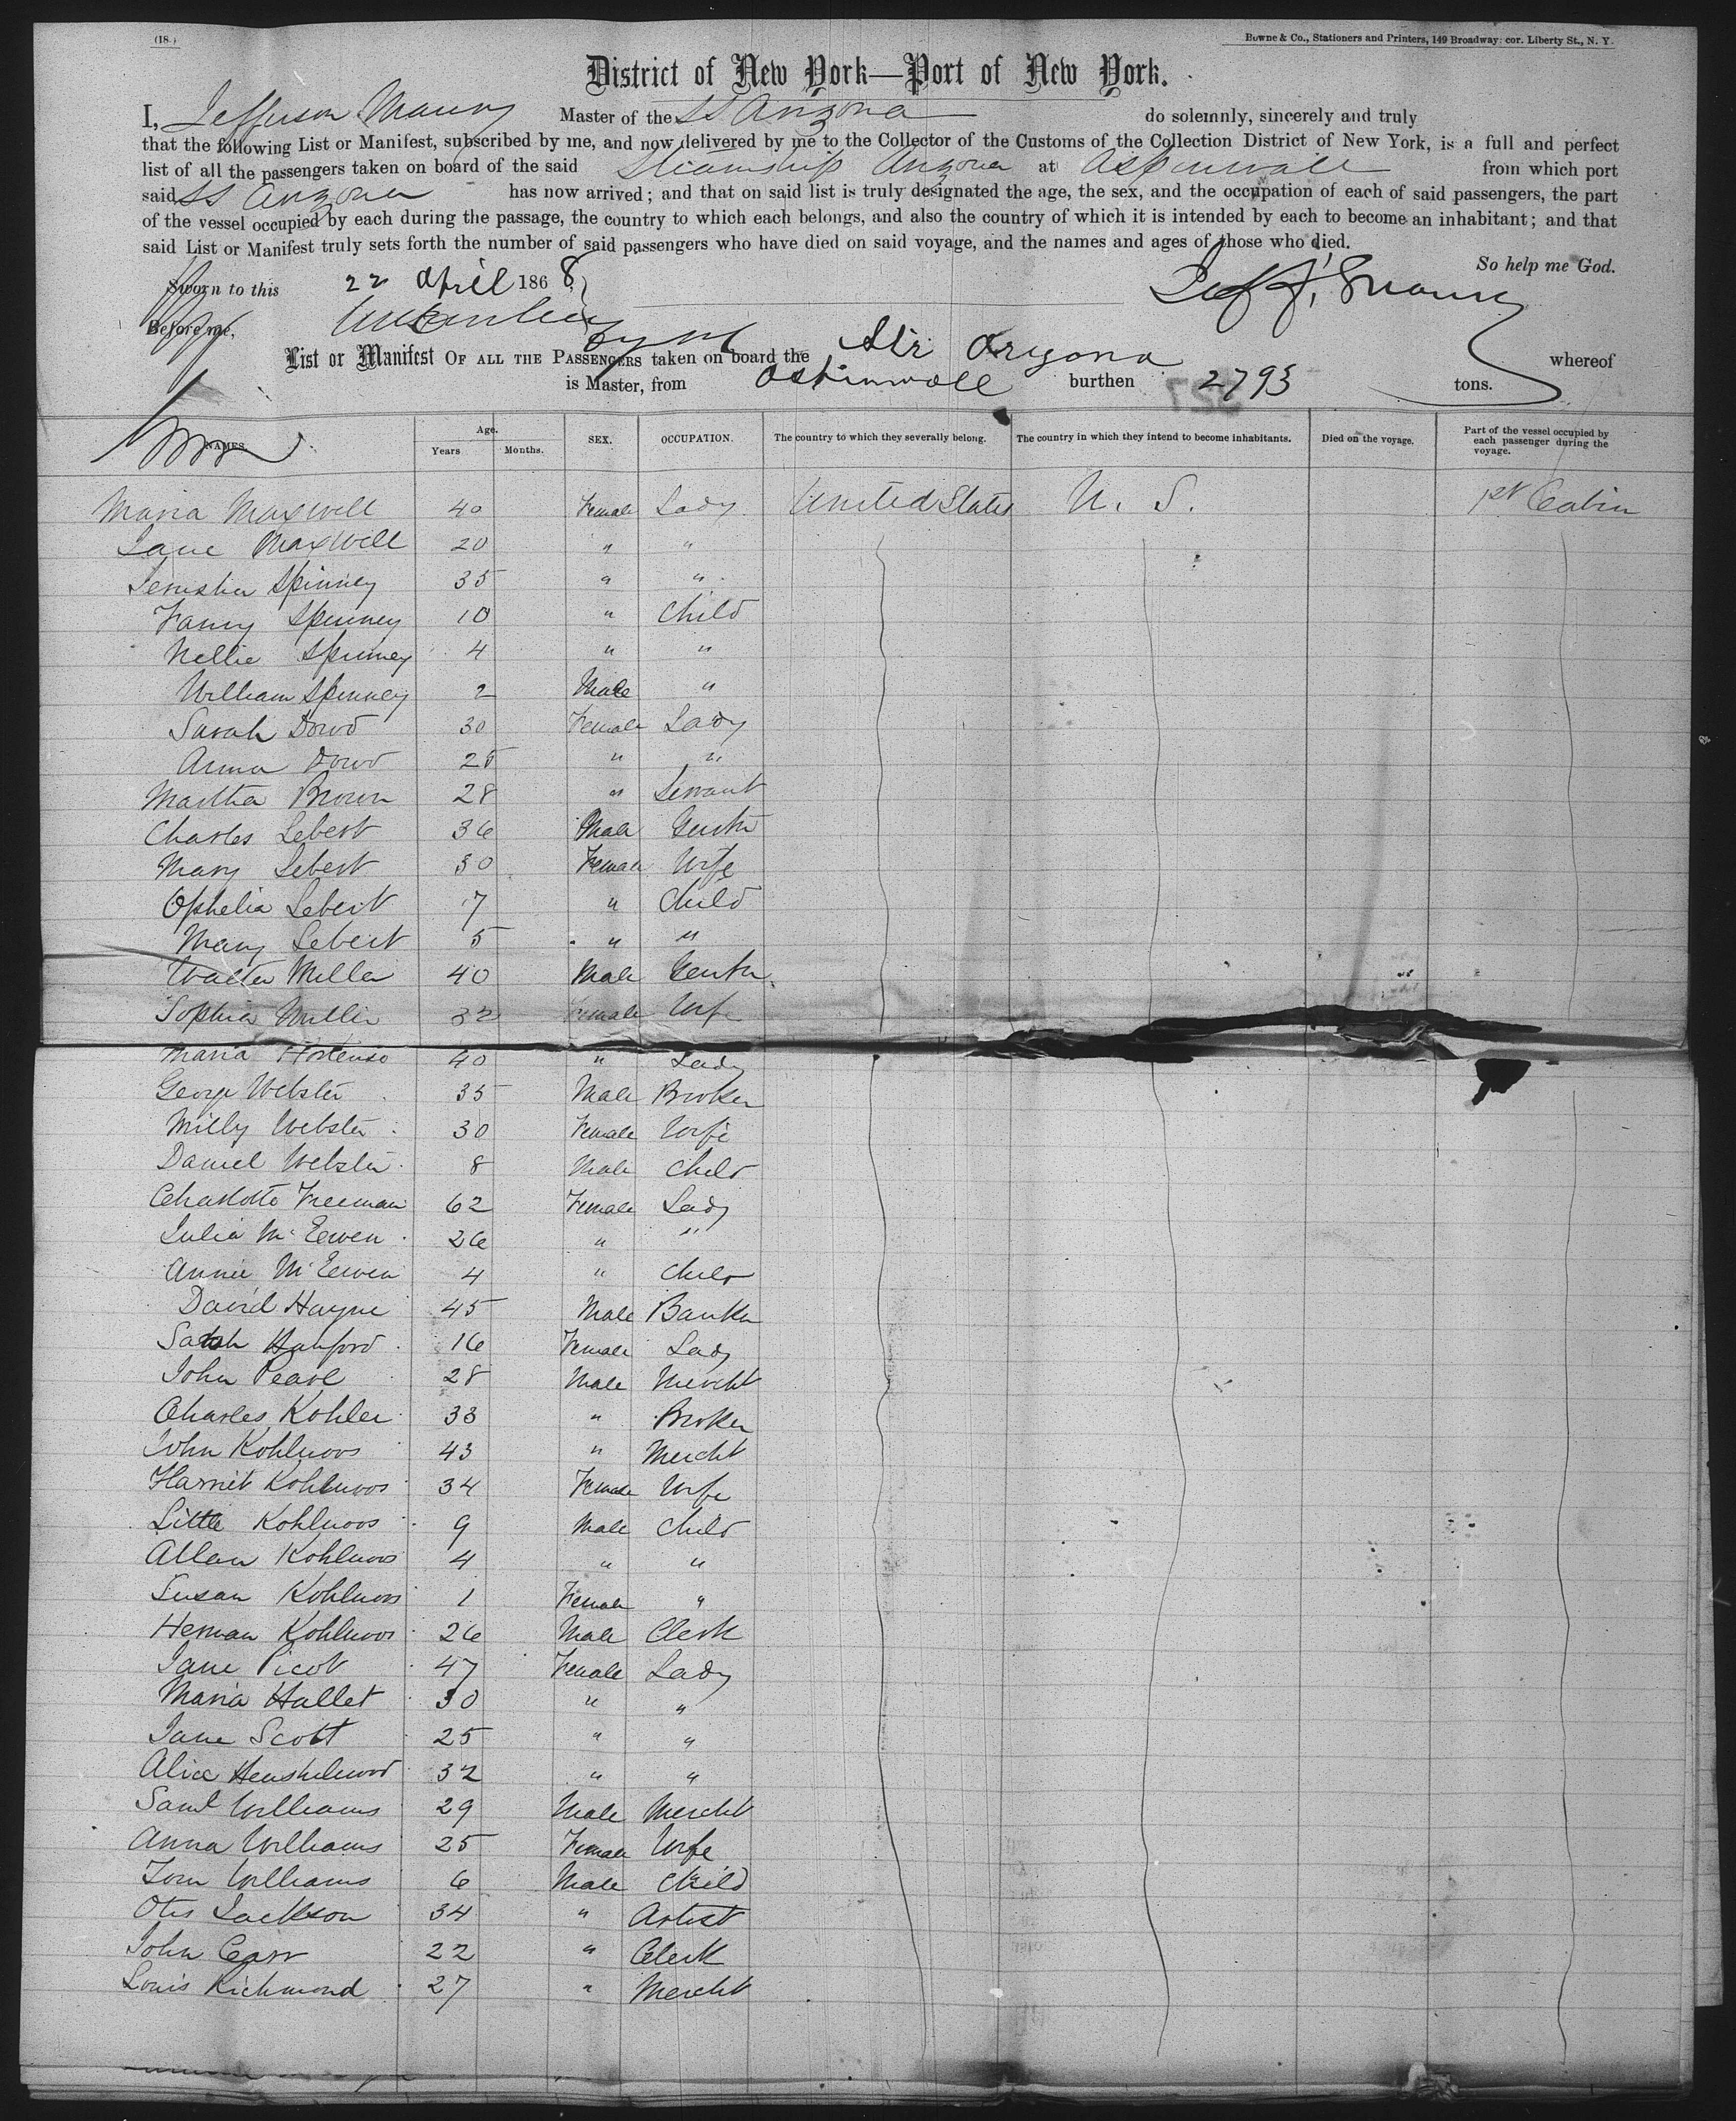 (18.)
Bowne & Co., Stationers and Printers, 149 Broadway: cor. Liberty St., N. Y.
District of New York—Port of New York.
I, Jefferson Maury Master of the SS Arizona do solemnly, sincerely and truly
that the following List or Manifest, subscribed by me, and now delivered by me to the Collector of the Customs of the Collection District of New York, is a full and perfect
list of all the passengers taken on board of the said Steamship Arizona at Aspinwall from which port
said SS Arizona has now arrived; and that on said list is truly designated the age, the sex, and the occupation of each of said passengers, the part
of the vessel occupied by each during the passage, the country to which each belongs, and also the country of which it is intended by each to become an inhabitant; and that
said List or Manifest truly sets forth the number of said passengers who have died on said voyage, and the names and ages of those who died.
So help me God.
Sworn to this 22 April 1868 Jeff. Maury
Before me,
List or Manifest OF ALL THE PASSENGERS taken on board the Str Arizona whereof
is Master, from Aspinwall burthen 2793 tons.
NAMES. Age. Years Months. SEX. OCCUPATION. The country to which they severally belong. The country in which they intend to become inhabitants. Died on the voyage. Part of the vessel occupied by each passenger during the voyage.
Maria Maxwell 40 Female Lady United States U. S. 1st Cabin
Jane Maxwell 20 " "
Jerusha Spinney 35 " "
Fanny Spinney 10 " Child
Nellie Spinney 4 " "
William Spinney 2 Male "
Sarah Dowd 30 Female Lady
Anna Dowd 25 " "
Martha Brown 28 " Servant
Charles Lebert 36 Male Gentn
Mary Lebert 30 Female Wife
Ophelia Lebert 7 " Child
Mary Lebert 5 " "
Walter Miller 40 Male Gentn
Sophia Miller 32 Female Wife
Maria Hortenso 40 " Lady
George Webster 35 Male Broker
Milly Webster 30 Female Wife
Daniel Webster 8 Male Child
Charlotte Freeman 62 Female Lady
Julia McEewen 26 " "
Annie McEewen 4 " Child
David Hayne 45 Male Banker
Sarah Hanford 16 Female Lady
John Pearl 28 Male Mercht
Charles Kohler 33 " Broker
John Kohlmoos 43 " Mercht
Harriet Kohlmoos 34 Female Wife
Little Kohlmoos 9 Male Child
Allan Kohlmoos 4 " "
Susan Kohlmoos 1 Female "
Herman Kohlmoos 26 Male Clerk
Jane Picot 47 Female Lady
Maria Hallet 30 " "
Jane Scott 25 " "
Alice Henshelwood 32 " "
Saml Williams 29 Male Mercht
Anna Williams 25 Female Wife
Tom Williams 6 Male Child
Otis Jackson 34 " Artist
John Carr 22 " Clerk
Louis Richmond 27 " Mercht